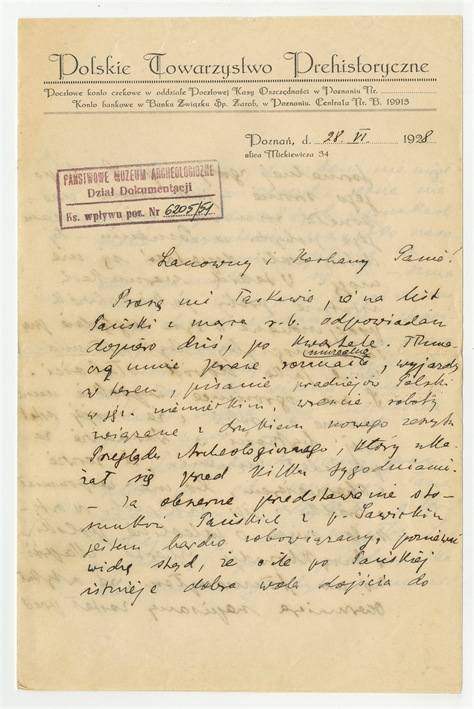 Polskie Towarzystwo Prehistoryczne
Pocztowe konto czekowe w oddziale Pocztowej Kasy Oszczędności w Poznaniu Nr.
Konto bankowe w Banku Związku Sp. Zarob. w Poznaniu. Centrala Nr. B. 19913
Poznań, d. 28. VI. 1928
ulica Mickiewicza 34
PAŃSTWOWE MUZEUM ARCHEOLOGICZNE
Dział Dokumentacji
Ks. wpływu poz. Nr 6205/51
Szanowny i Kochany Panie!
Proszę mi łaskawie, iż na list
Pański z marca r. b. odpowiadam
dopiero dziś, po kwartale. Tłuma-
czą mnie prace rozmaite, wyjazdy
w teren, pisanie pradziejów Polski
w jęz. niemieckim, wreszcie roboty
związane z drukiem nowego zeszytu
Przeglądu Archeologicznego, który uka-
zał się przed kilku tygodniami.
- Za obszerne przedstawienie sto-
sunków Pańskich z p. Sawickim
jestem bardzo zobowiązany, ponieważ
widzę stąd, że o ile po Pańskiej
istnieje dobra wola dojścia do